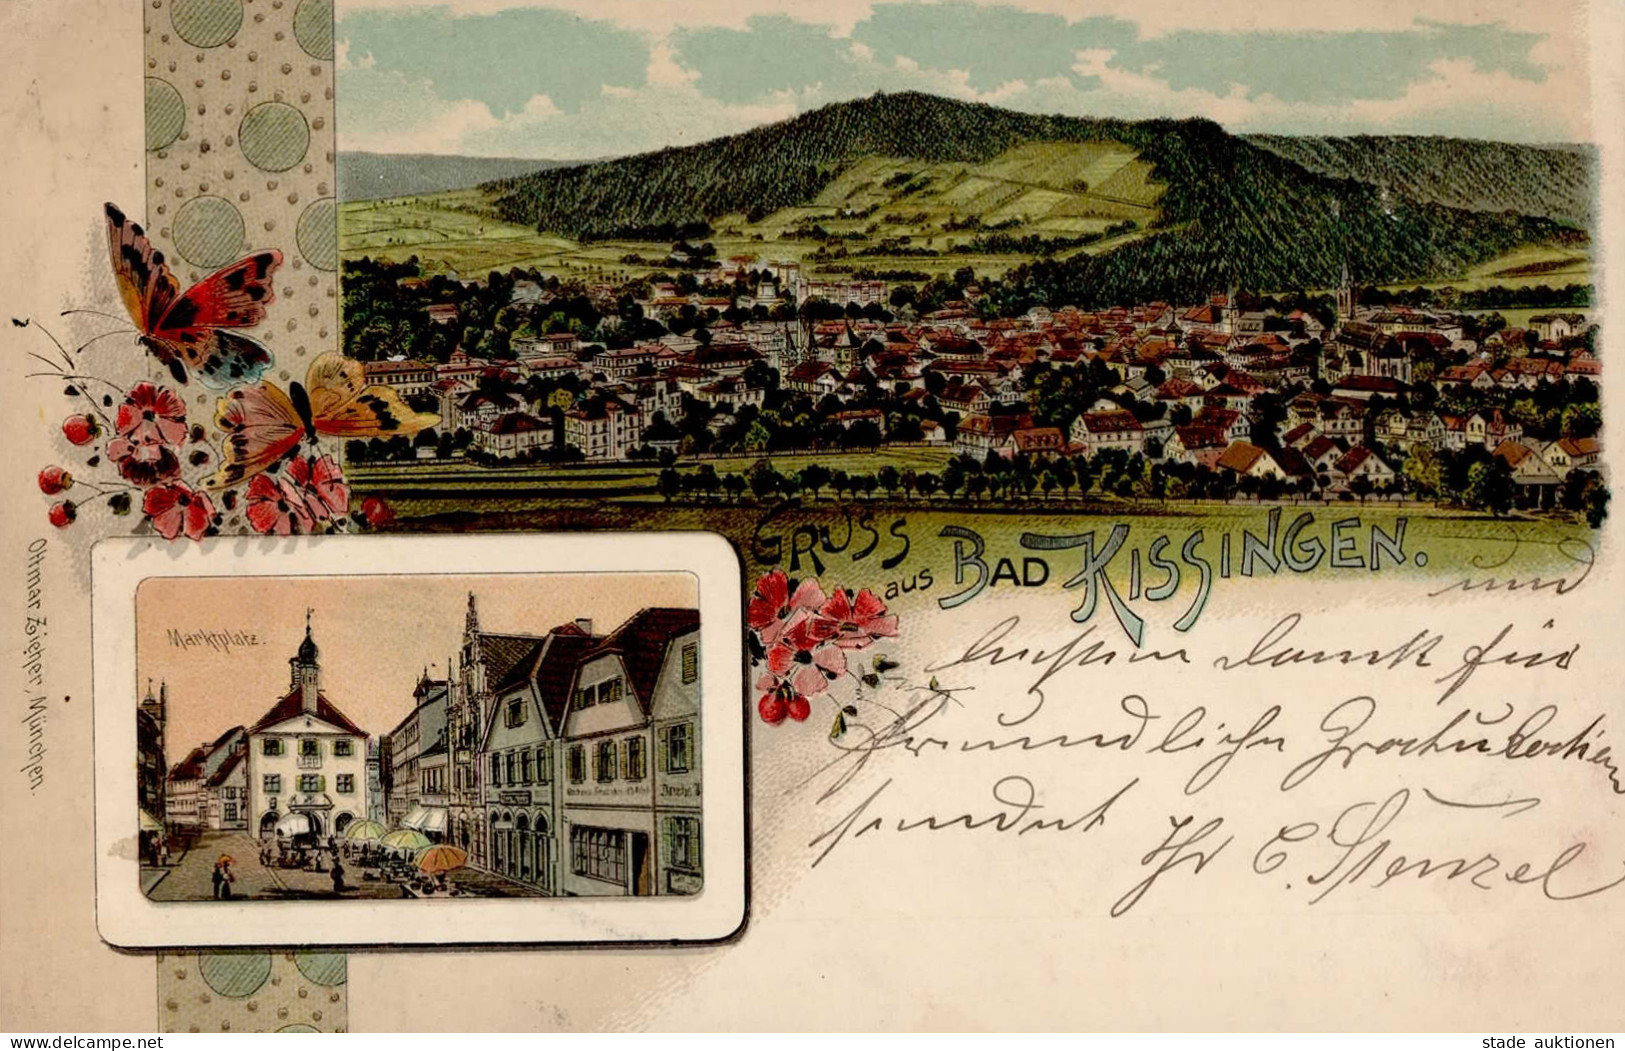 GRUSS
aus BAD KISSINGEN.
Marktplatz.
Ottmar Zieher, München.
und
besten Dank für
freundliche Gratulation
sendet
Ihr C. Stenzel
www.delcampe.net
stade auktionen